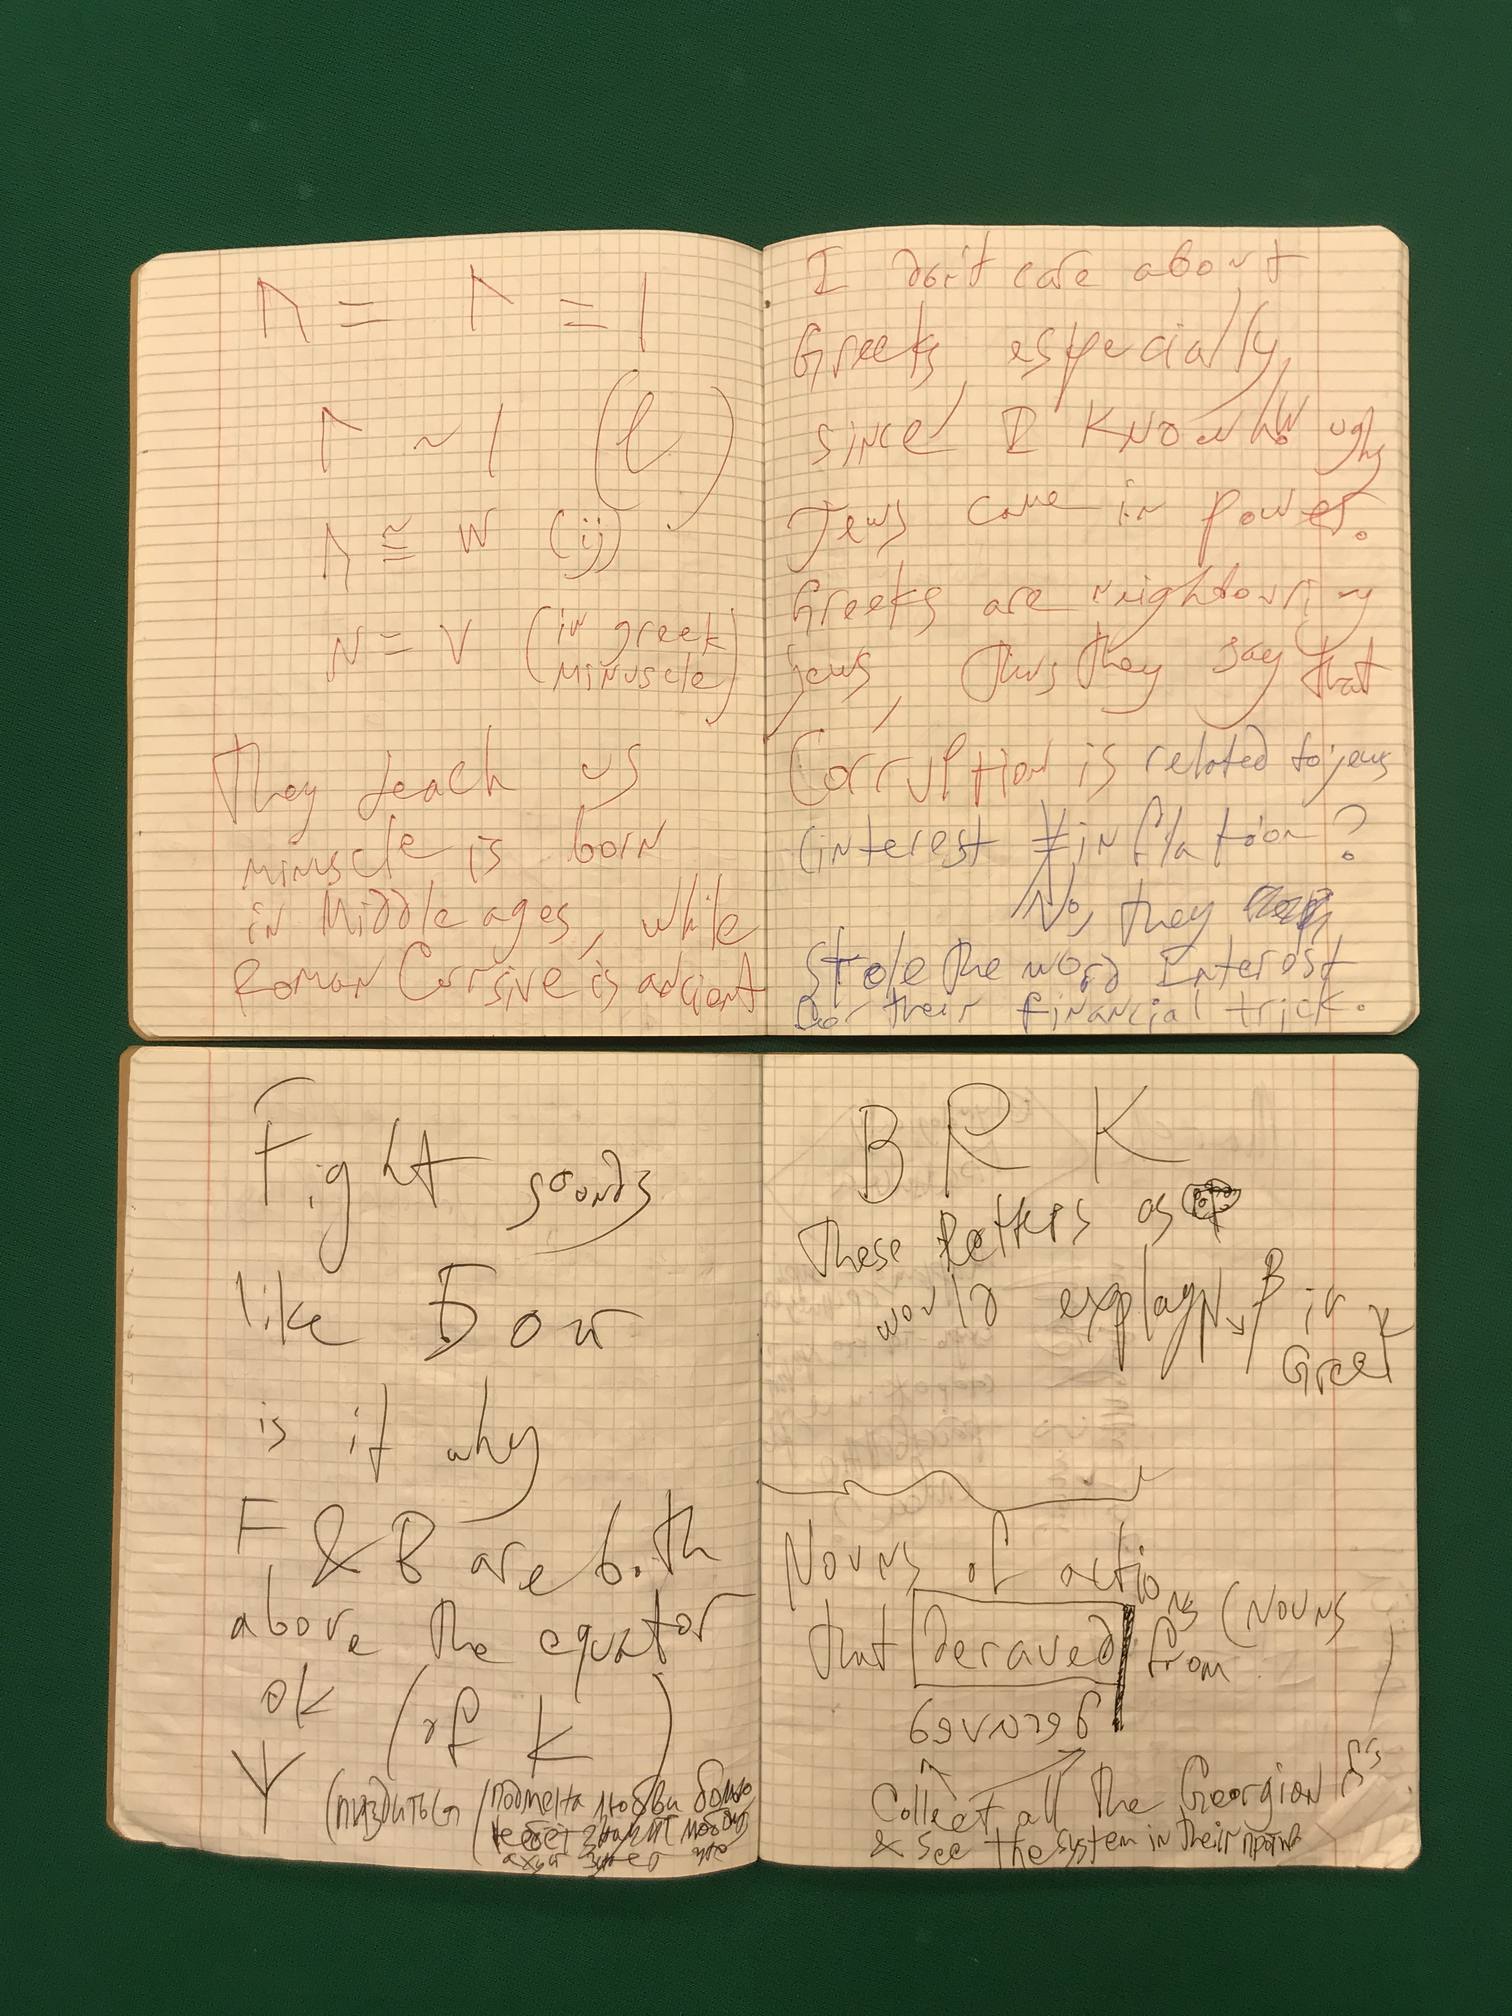 Λ = Λ = l
Γ ~ l (ℓ)
Λ ≅ И (ij)
N = V (in greek
minuscle)
They teach us
minuscle is born
in Middle ages, while
Roman Cursive is ancient
I don't care about
Greeks, especially,
since I know how ugly
Jews came in power.
Greeks are neighbouring
jews, thus they say that
Corruption is related to jews
(interest ≠ inflation?
No, they
stole the word Interest
for their financial trick.
Fight sounds
like Бои
is it why
F & B are both
above the equator
ok (of K)
Ψ (пиздиться
B R K
These letters as
would explayn β in
Greek
Nouns of actions (nouns
that deraved from
Collect all the Georgian
& see the system in their